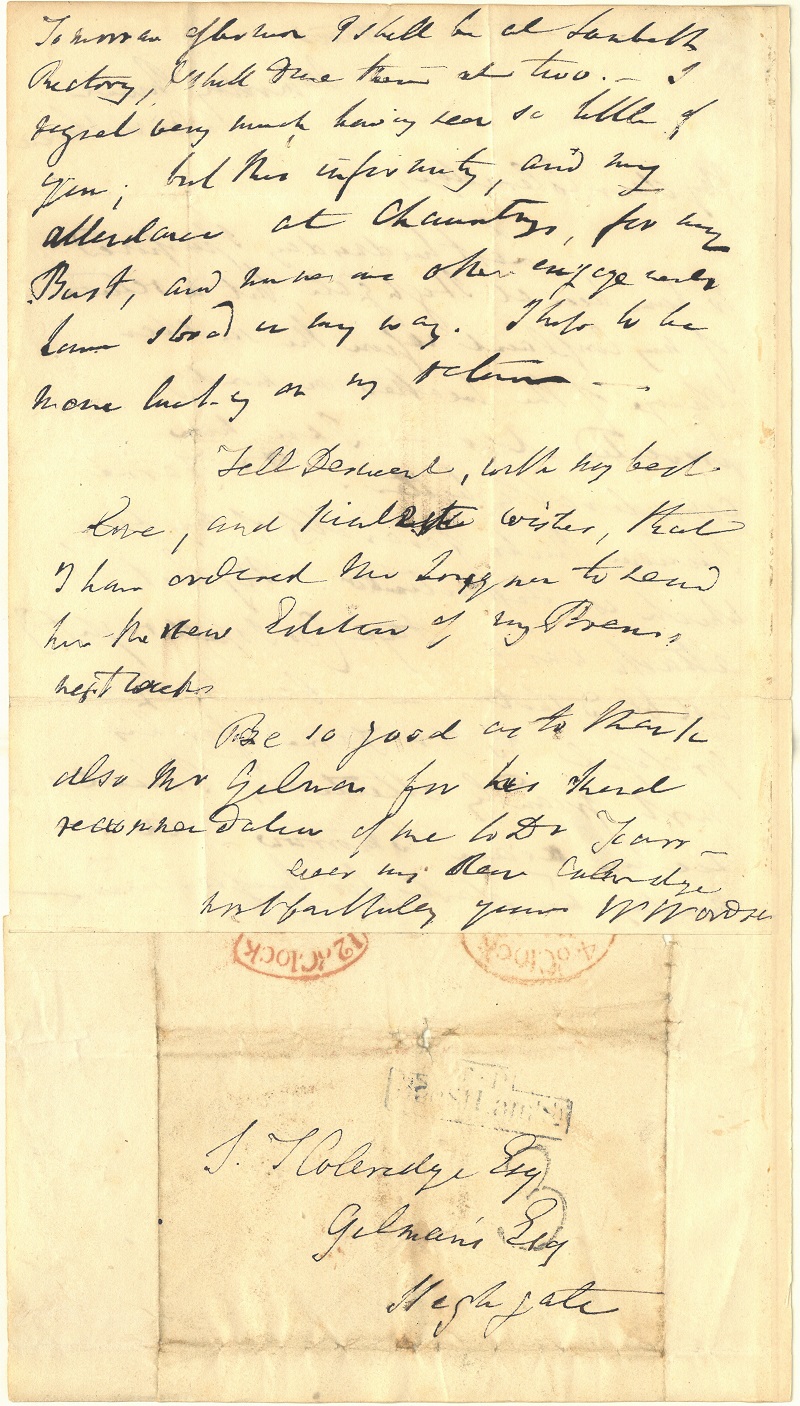 Tomorrow afternoon I shall be at Lambeth
Rectory, I shall dine there at two. — I
regret very much having seen so little of
you; but this infirmity, and my
attendance at Chauntrys, for my
Bust, and numerous other engagements
have stood in my way. I hope to be
more lucky on my return —
Tell Derwent, with my best
love, and kindest wishes, that
I have ordered Mr Longman to send
him the new Edition of my Poems,
next week
Be so good as to thank
also Mr Gilman for his kind
recommendation of me to Dr
ever my dear Coleridge
most faithfully yours W Wordsw
12 o'Clock
4 o'Clock
S. T Coleridge Esq
Gilman's Esq
Highgate